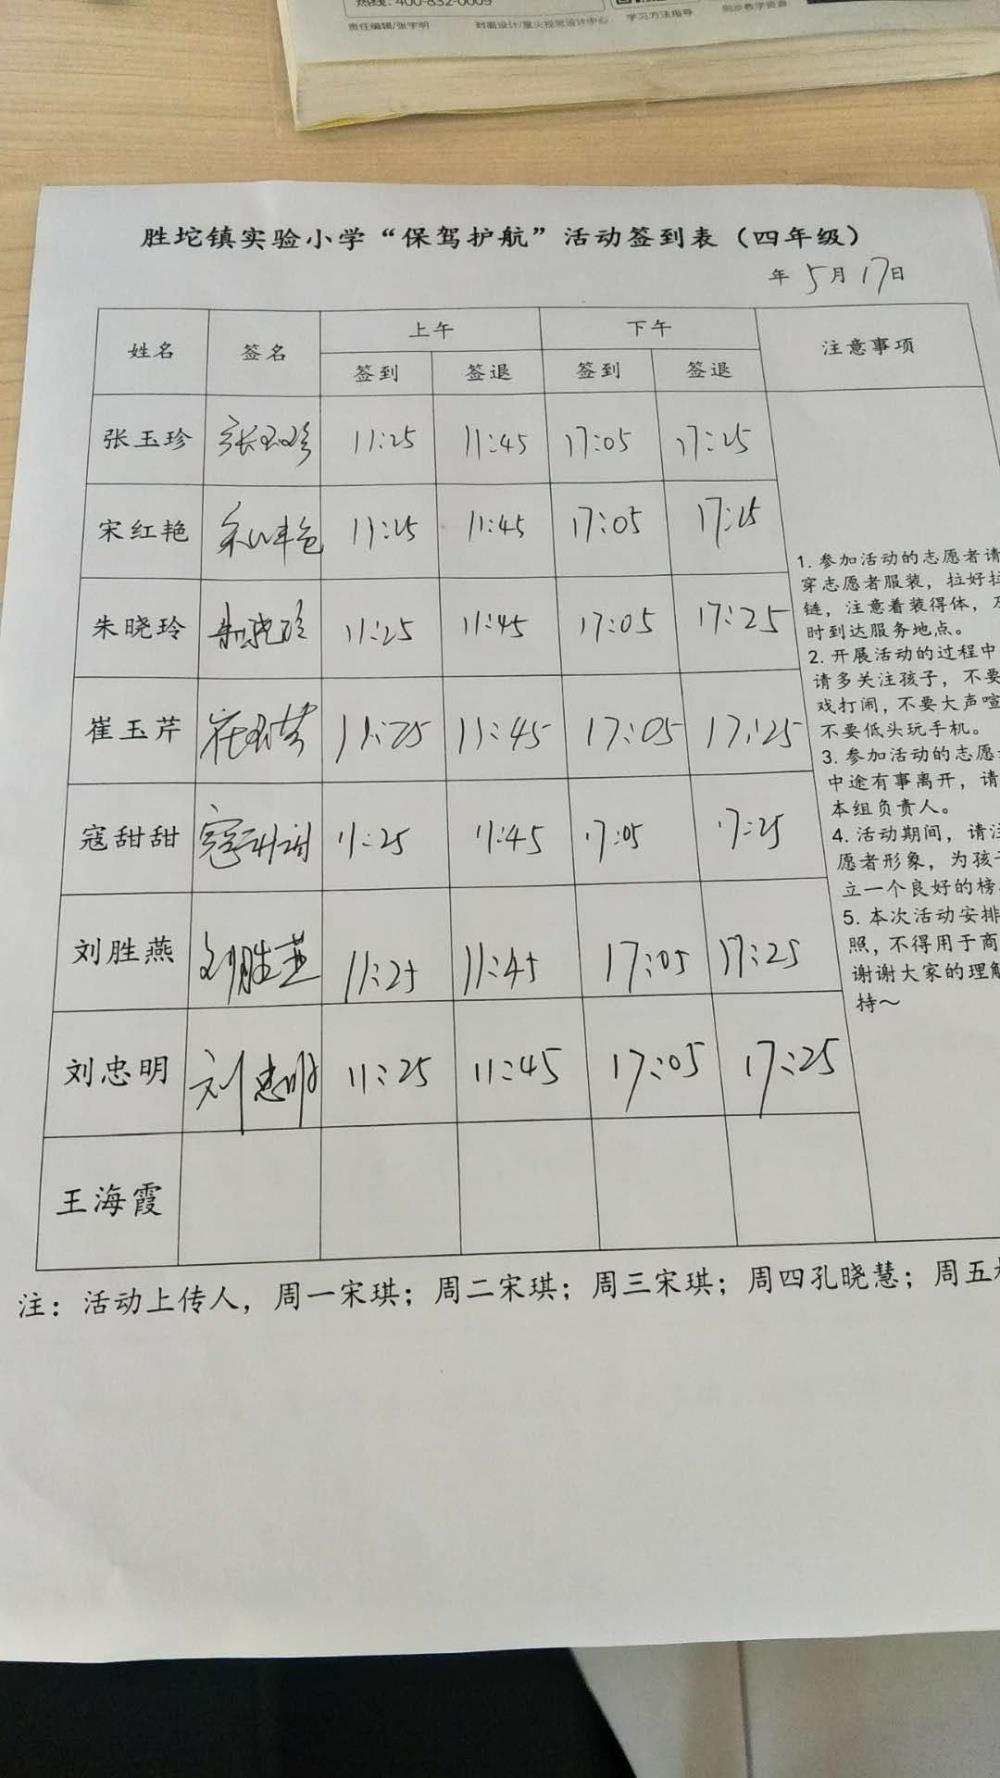 热线: 400-832-0009
责任编辑/张宇明 封面设计/星火视觉设计中心 学习方法指导 同步教学资源
胜坨镇实验小学“保驾护航”活动签到表（四年级）
年 5月 17日
姓名 签名 上午 下午 注意事项
签到 签退 签到 签退
张玉珍 张玉珍 11:25 11:45 17:05 17:25
宋红艳 宋红艳 11:25 11:45 17:05 17:25
朱晓玲 朱晓玲 11:25 11:45 17:05 17:25
崔玉芹 崔玉芹 11:25 11:45 17:05 17:25
寇甜甜 寇甜甜 11:25 11:45 17:05 17:25
刘胜燕 刘胜燕 11:25 11:45 17:05 17:25
刘忠明 刘忠明 11:25 11:45 17:05 17:25
王海霞
1. 参加活动的志愿者请
穿志愿者服装，拉好拉
链，注意着装得体，及
时到达服务地点。
2. 开展活动的过程中
请多关注孩子，不要
戏打闹，不要大声喧
不要低头玩手机。
3. 参加活动的志愿
中途有事离开，请
本组负责人。
4. 活动期间，请注
愿者形象，为孩子
立一个良好的榜
5. 本次活动安排
照，不得用于商
谢谢大家的理解
持～
注：活动上传人，周一宋琪；周二宋琪；周三宋琪；周四孔晓慧；周五